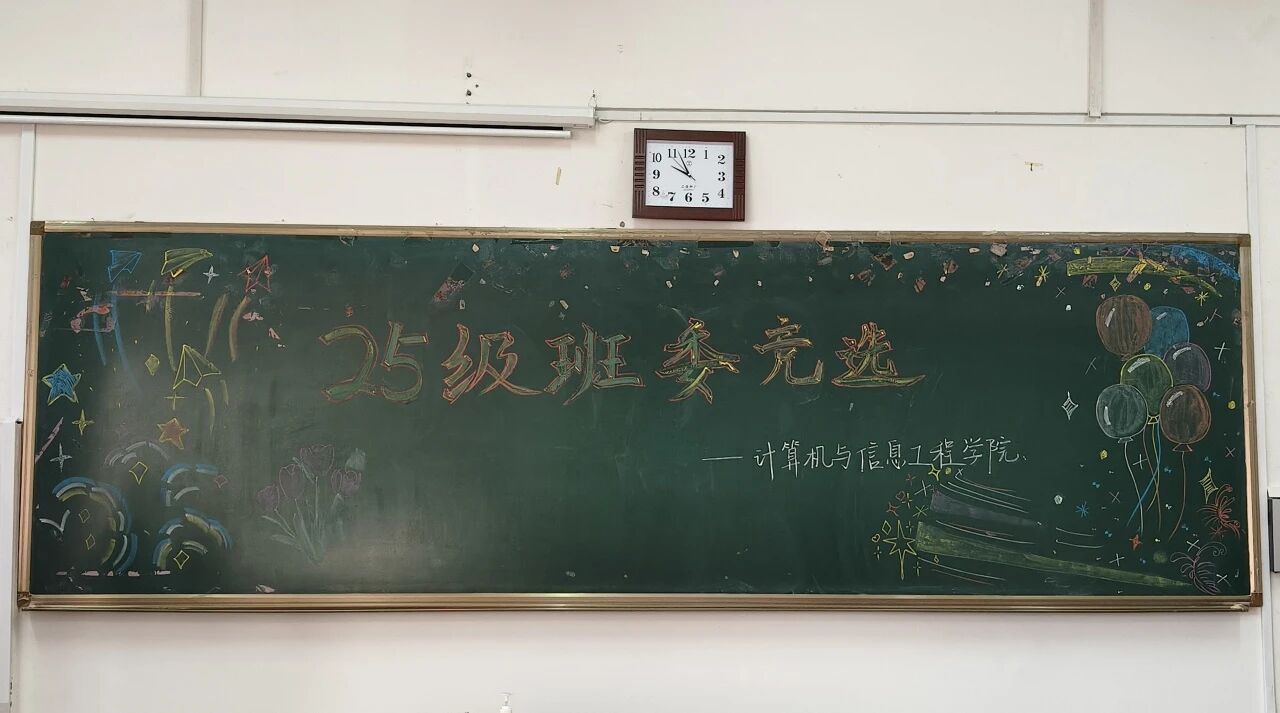 11 12 1
10 2
9 3
8 4
7 6 5
25级班委竞选
—计算机与信息工程学院